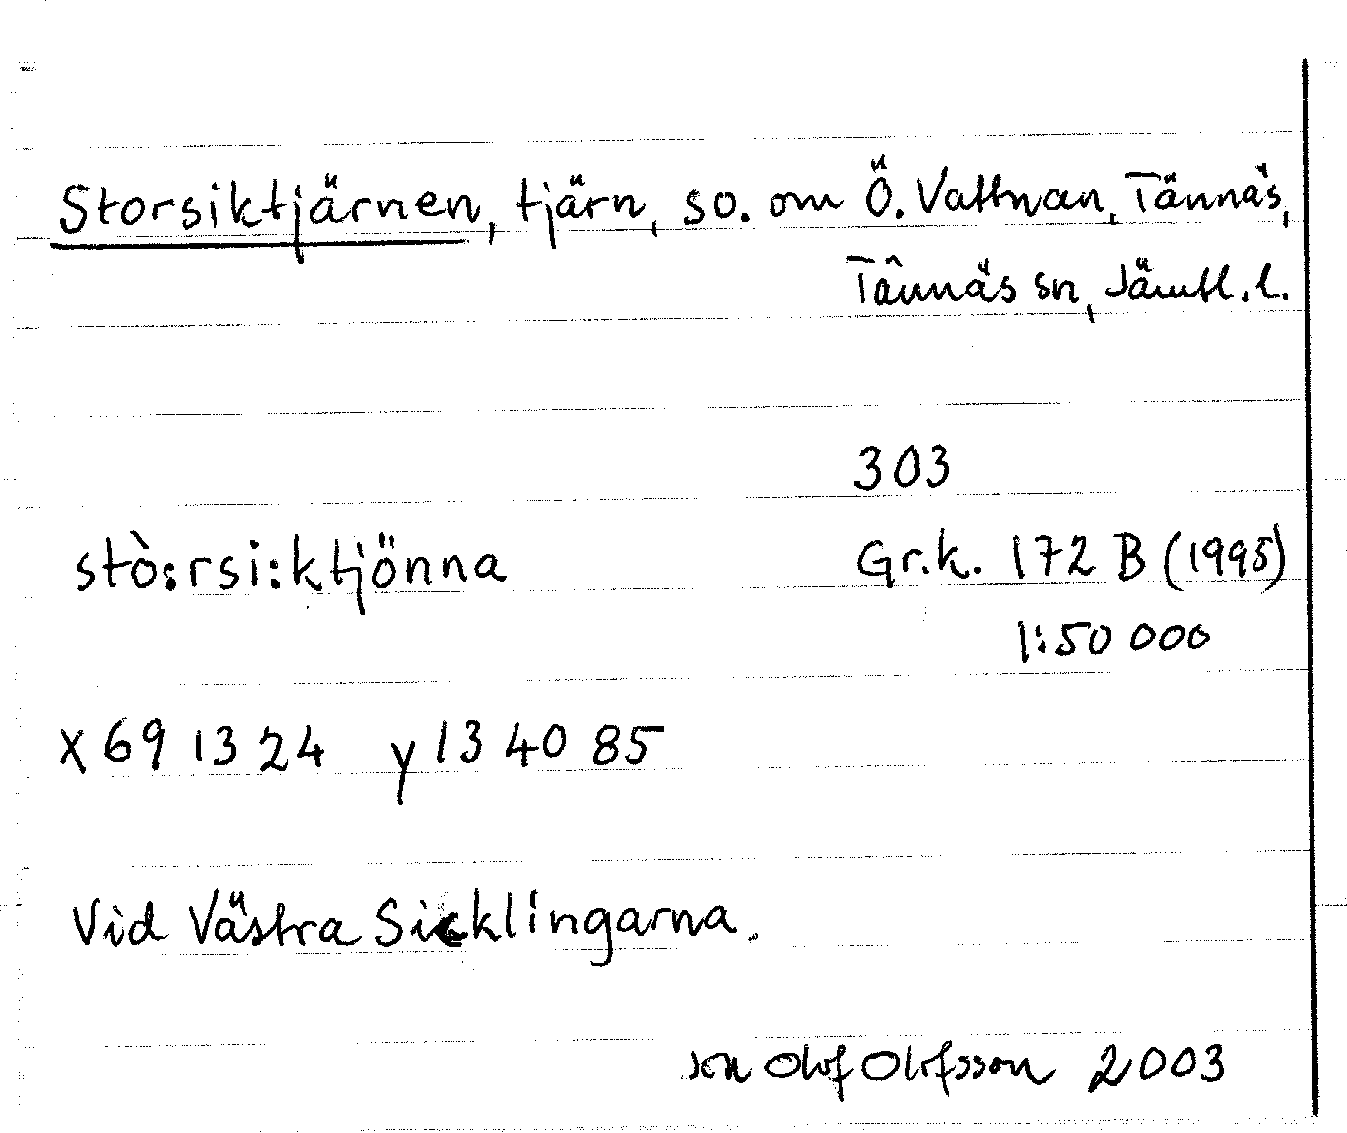 Storsiktjärnen, tjärn, so. om Ö. Vattnan, Tännäs,
Tännäs sn, Jämtl. l.
303
stò:rsi:ktjönna Gr.k. 172 B (1995)
1:50 000
x 69 13 24 y 13 40 85
Vid Västra Sicklingarna.
Jon Olof Olofsson 2003